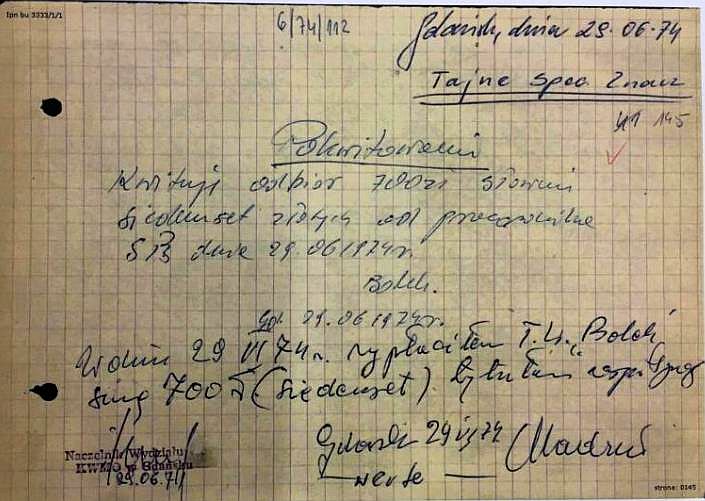 Ipn bu 3333/1/1
6/74/112
Gdańsk, dnia 29.06.74
Tajne spec. znacz
145
Pokwitowanie
Kwituję odbiór 700zł słownie
siedemset złotych od pracownika
SB dnia 29.06.1974r.
Bolek.
Gd. 29.06.1974r.
W dniu 29 VI 74 r. wypłaciłem T.W. „Bolek"
sumę 700 zł (siedemset). tytułem
Naczelnik Wydziału
KWMO w Gdańsku
29.06.74
Gdańsk 29 VI 74
verte
strona: 0145